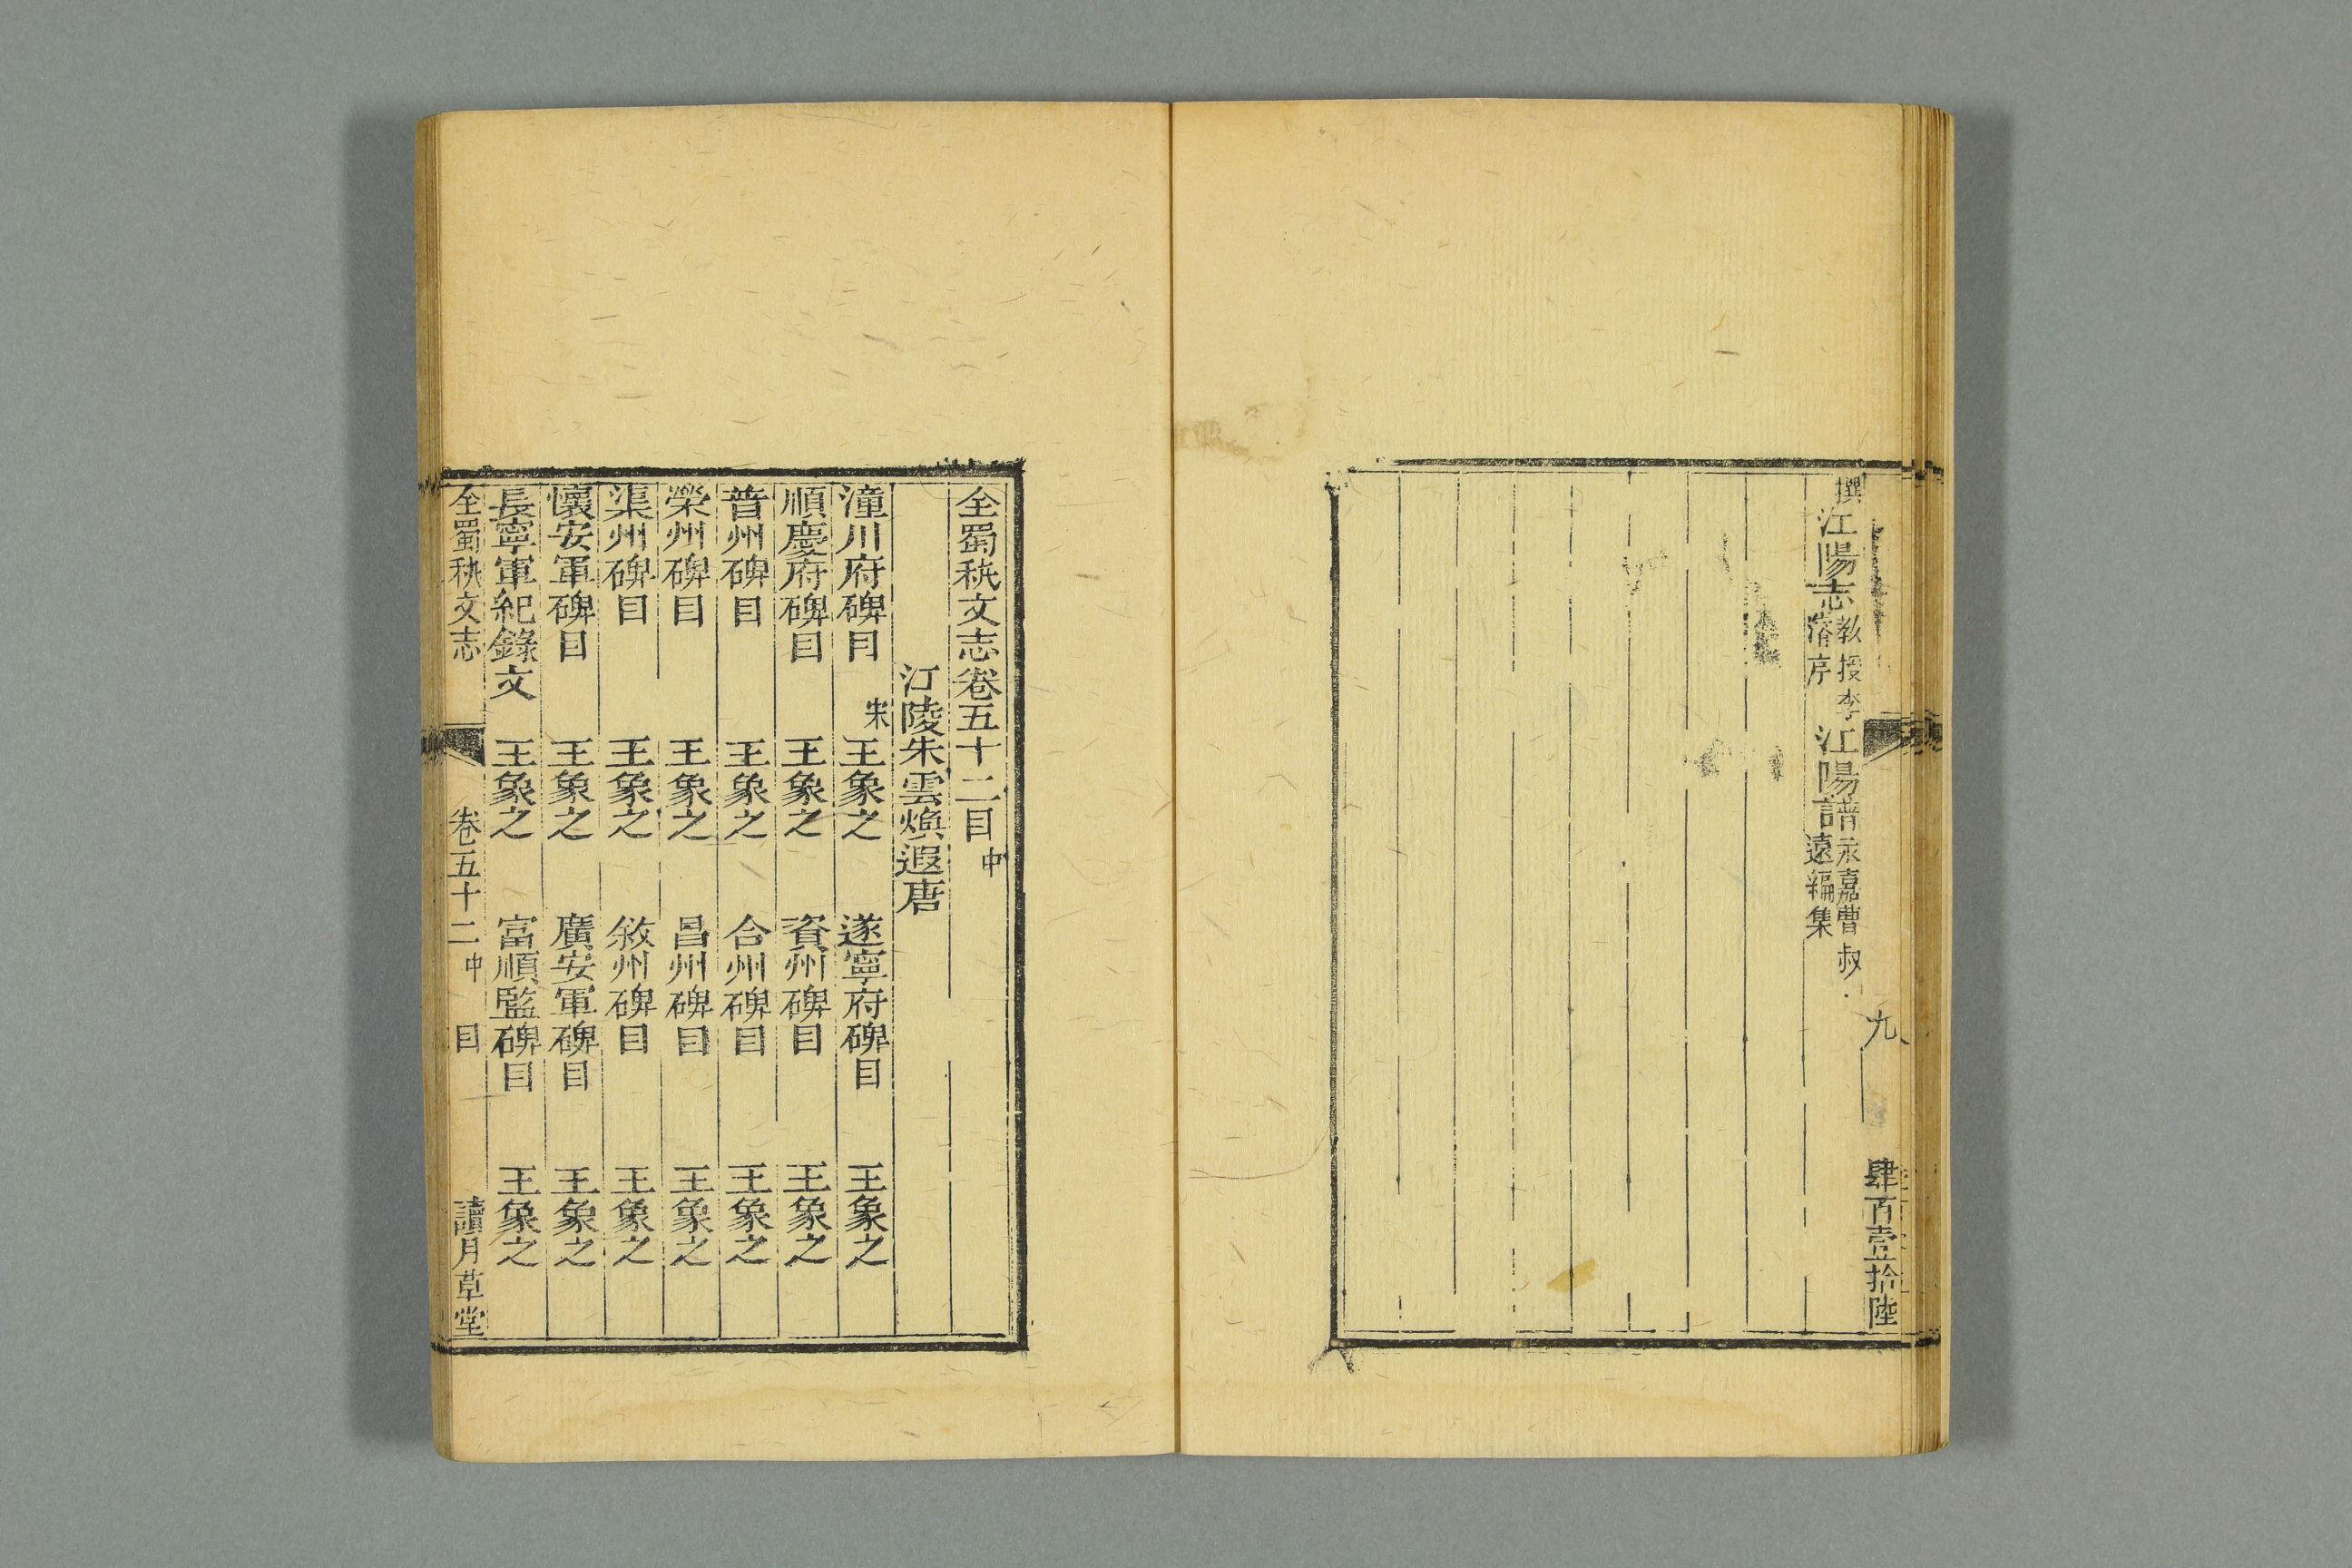 撰江陽志教授李㴑序江陽譜永嘉曹叔遠編集
九
肆百壹拾陸
全蜀秇文志卷五十二目中
江陵朱雲煥遐唐
潼川府碑目 宋王象之 遂寧府碑目 王象之
順慶府碑目 王象之 資州碑目 王象之
普州碑目 王象之 合州碑目 王象之
榮州碑目 王象之 昌州碑目 王象之
渠州碑目 王象之 敘州碑目 王象之
懷安軍碑目 王象之 廣安軍碑目 王象之
長寧軍紀錄文 王象之 富順監碑目 王象之
全蜀秇文志 卷五十二中 目 讀月草堂